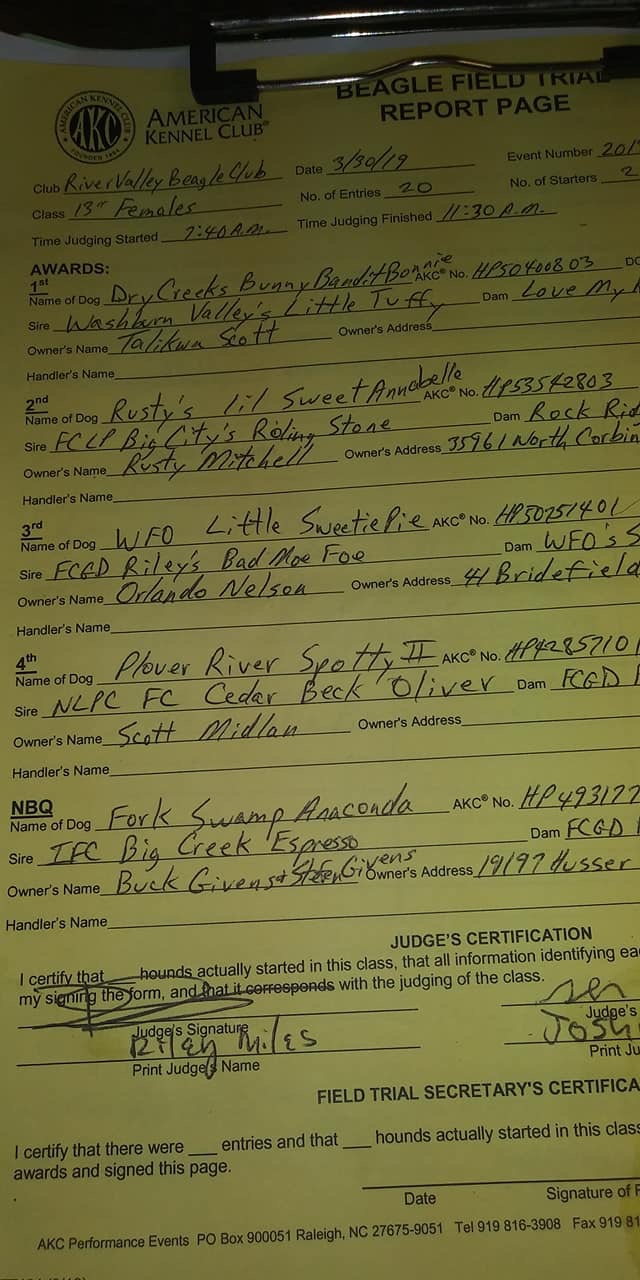 BEAGLE FIELD TRIAL
REPORT PAGE
AMERICAN KENNEL CLUB
AKC
FOUNDED 1884
AMERICAN
KENNEL CLUB®
Club River Valley Beagle Club Date 3/30/19 Event Number 201
Class 13" Females No. of Entries 20 No. of Starters 2
Time Judging Started 7:40 A.M. Time Judging Finished 11:30 A.M.
AWARDS:
1st
Name of Dog Dry Creeks Bunny Bandit Bonnie AKC® No. HP50400803
Sire Washburn Valley's Little Tuffy Dam Love My
Owner's Name Talikwa Scott Owner's Address
Handler's Name
2nd
Name of Dog Rusty's lil Sweet Annabelle AKC® No. HP53542803
Sire FCLP Big City's Roling Stone Dam Rock Rid
Owner's Name Rusty Mitchell Owner's Address 35961 North Corbin
Handler's Name
3rd
Name of Dog WFO Little SweetiePie AKC® No. HP50251401
Sire FCGD Riley's Bad Moe Foe Dam WFO's S
Owner's Name Orlando Nelson Owner's Address 41 Bridefield
Handler's Name
4th
Name of Dog Plover River Spotty II AKC® No. HP42857101
Sire NLPC FC Cedar Beck Oliver Dam FCGD
Owner's Name Scott Midlan Owner's Address
Handler's Name
NBQ
Name of Dog Fork Swamp Anaconda AKC® No. HP493177
Sire IFC Big Creek Espresso Dam FCGD
Owner's Name Buck Givens & Givens Owner's Address 19197 Husser
Handler's Name
JUDGE'S CERTIFICATION
I certify that ___ hounds actually started in this class, that all information identifying ea
my signing the form, and that it corresponds with the judging of the class.
Judge's Signature Judge's
Riley Miles Josh
Print Judge's Name Print Ju
FIELD TRIAL SECRETARY'S CERTIFICA
I certify that there were ___ entries and that ___ hounds actually started in this class
awards and signed this page.
Date Signature of F
AKC Performance Events PO Box 900051 Raleigh, NC 27675-9051 Tel 919 816-3908 Fax 919 81